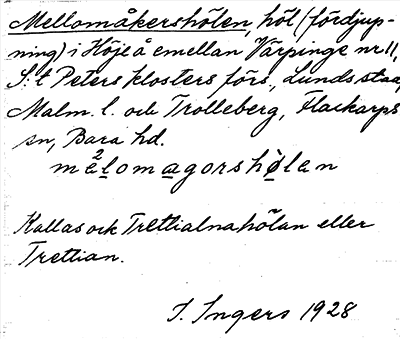 Mellomåkershölen, höl (fördjup-
ning) i Höje å emellan Värpinge nr 11,
S:t Peters klosters förs., Lunds stad,
Malm. l. och Trolleberg, Flackarps
sn, Bara hd.
melomagorshølen
Kallas ock Trettialnahölan eller
Trettian.
I. Ingers 1928